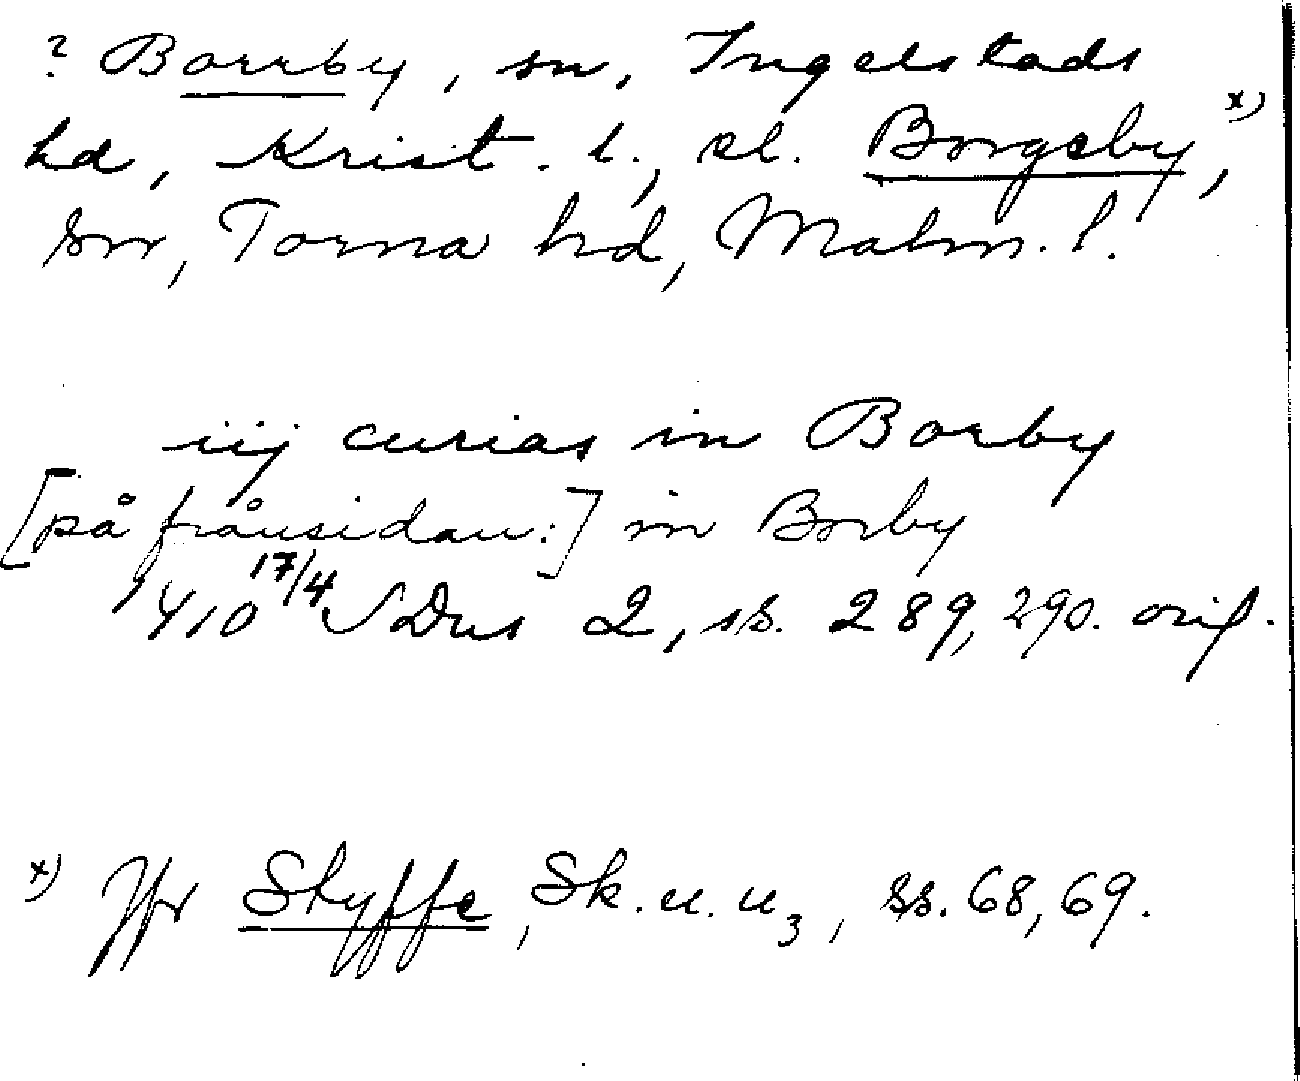 ? Borrby, sn, Ingelstads
hd, Krist. l., el. Borgeby, x)
sn, Torna hd, Malm. l.
iij curias in Borby
[på frånsidan:] in Borby
1410 17/4 SDns 2, ss. 289, 290. orig.
x) Jfr Styffe, Sk. u. u3, ss. 68, 69.